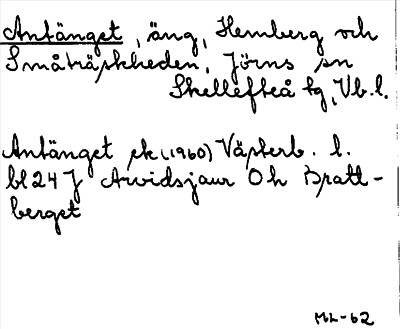 Antänget, äng, Hemberg och
Småträskheden, Jörns sn
Skellefteå tg, Vb. l.
Antänget ek (1960) Västerb. l.
bl 24 J Arvidsjaur Öh Bratt-
berget
ML-62